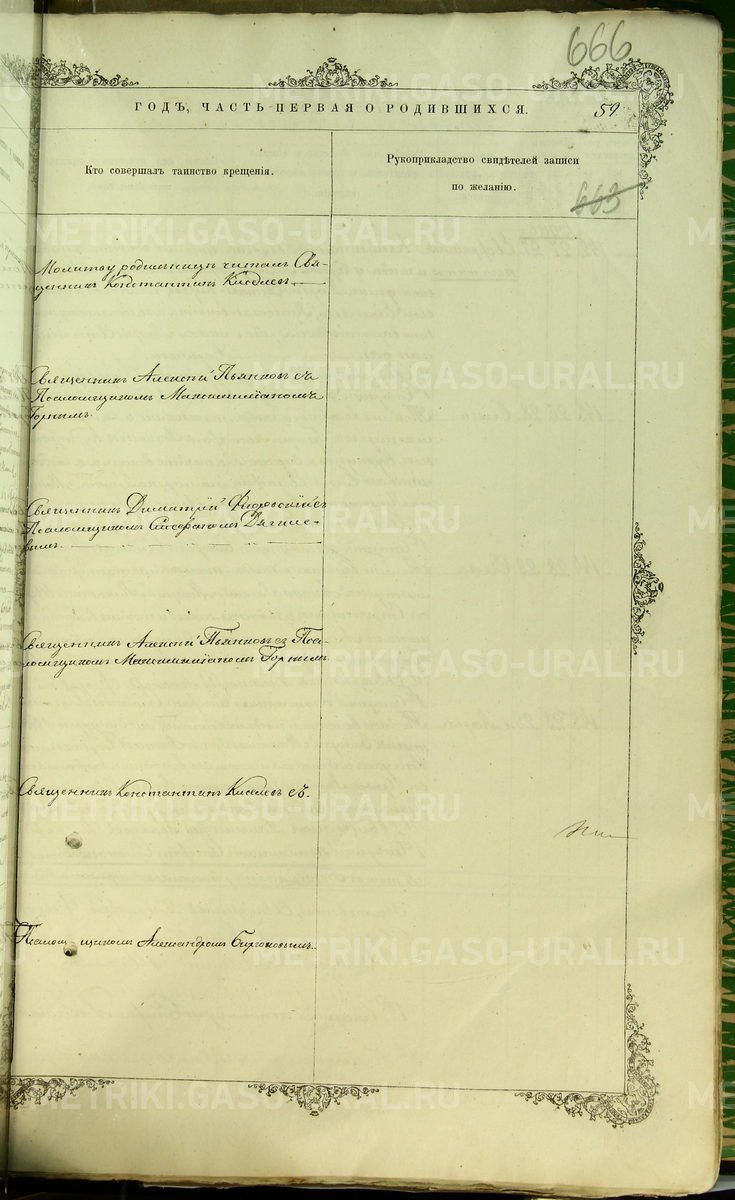 666
ГОДЪ, ЧАСТЬ ПЕРВАЯ О РОДИВШИХСЯ.
59
Кто совершалъ таинство крещенія.
Рукоприкладство свидѣтелей записи
по желанію.
663
Молитву родильницѣ читалъ Свя-
щенникъ Константинъ Киселевъ
Священникъ Алексій Пьянковъ съ
Псаломщикомъ Максимиліаномъ
Горнымъ.
Священникъ Димитрій съ
Псаломщикомъ Дягиле-
вымъ.
Священникъ Алексій Пьянковъ съ Пса-
ломщикомъ Максимиліаномъ Горнымъ
Священникъ Константинъ Киселевъ съ.
Псалом-щикомъ Александромъ
METRIKI.GASO-URAL.RU